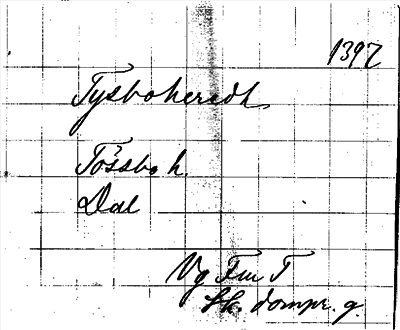 1397
Tysboheredh
Tössbo h.
Dal
Vg Fm T
Sk. dompr. g.